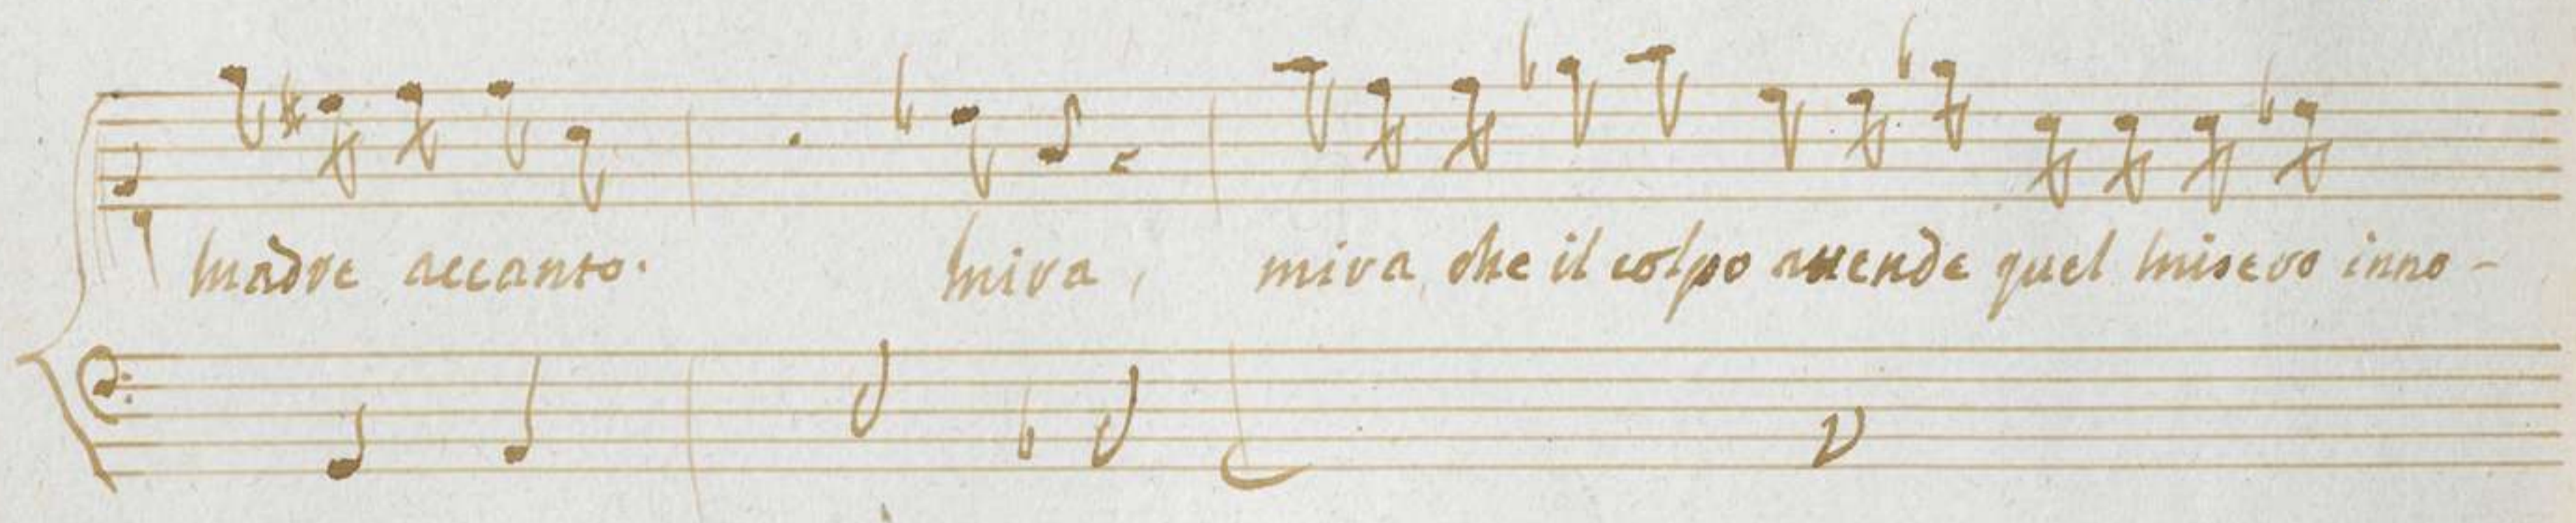 madre accanto. mira, mira, che il colpo attende quel misero inno-